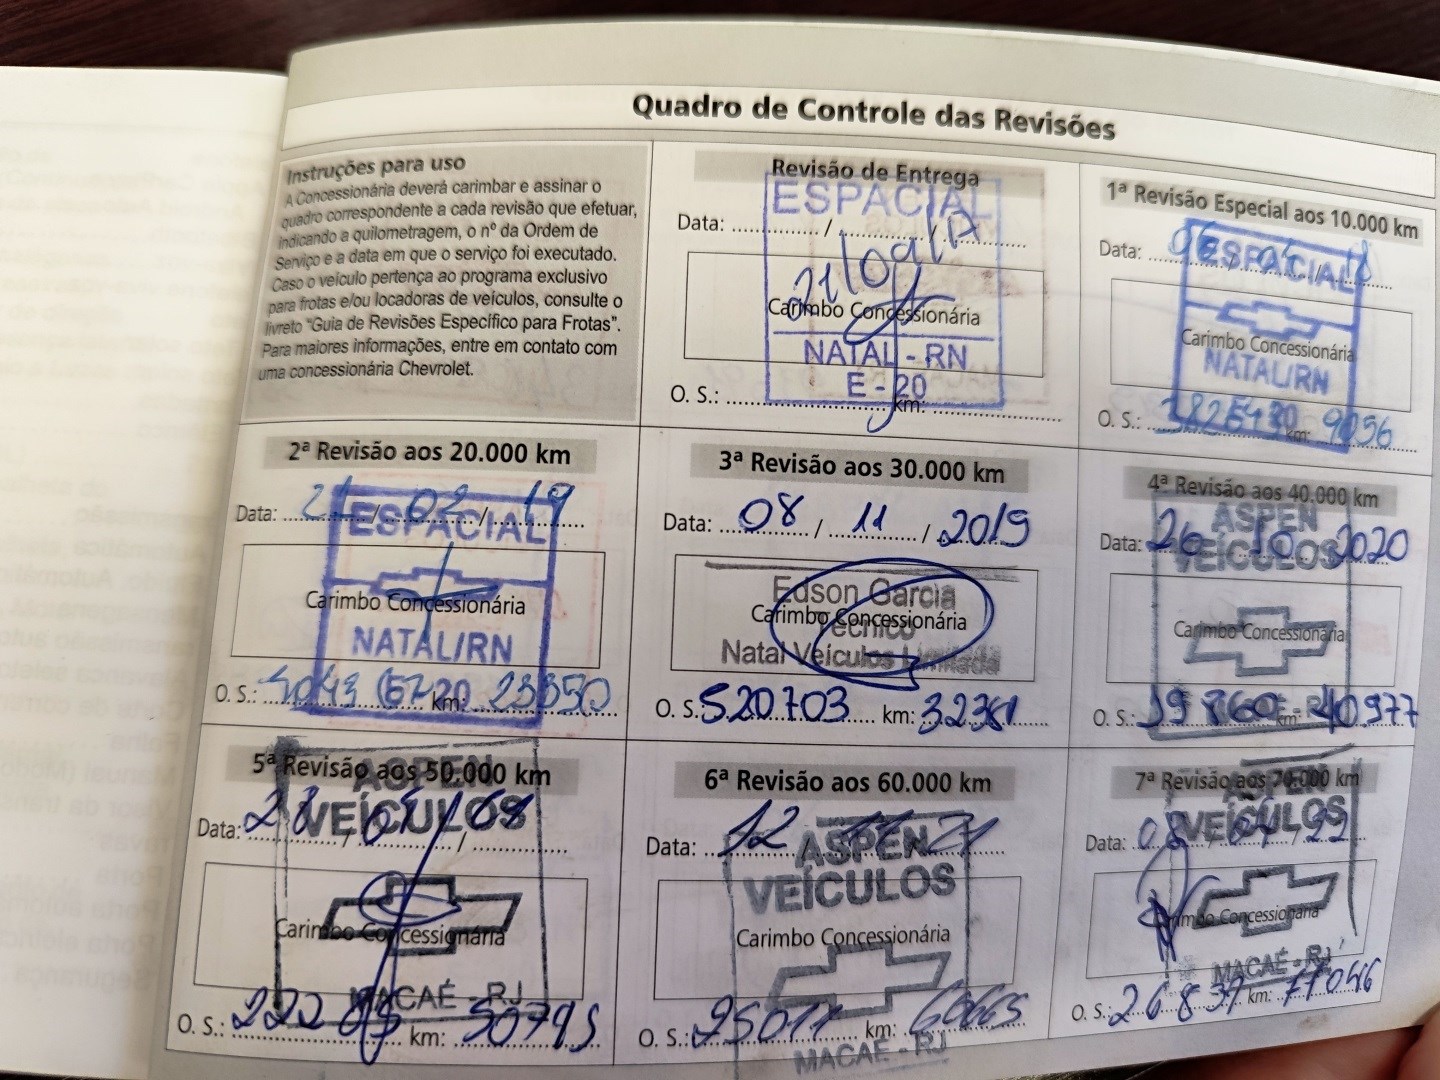 Quadro de Controle das Revisões
Instruções para uso
A Concessionária deverá carimbar e assinar o
quadro correspondente a cada revisão que efetuar,
indicando a quilometragem, o nº da Ordem de
Serviço e a data em que o serviço foi executado.
Caso o veículo pertença ao programa exclusivo
para frotas e/ou locadoras de veículos, consulte o
livreto "Guia de Revisões Específico para Frotas".
Para maiores informações, entre em contato com
uma concessionária Chevrolet.
Revisão de Entrega
ESPACIAL
Data: 21/09/17
Carimbo Concessionária
NATAL - RN
E - 20
O. S.: km:
1ª Revisão Especial aos 10.000 km
Data: 18
ESPACIAL
Carimbo Concessionária
NATAL/RN
O. S.: km: 9056
2ª Revisão aos 20.000 km
Data: 21 / 02 / 19
ESPACIAL
Carimbo Concessionária
NATAL/RN
O. S.: km: 23350
3ª Revisão aos 30.000 km
Data: 08 / 11 / 2019
Edson Garcia
Carimbo Concessionária
Técnico
Natal Veículos Limitada
O. S. 520703 km: 32381
4ª Revisão aos 40.000 km
ASPEN
Data: 26 10 2020
VEÍCULOS
Carimbo Concessionária
O. S.: 19860 km: 40977
5ª Revisão aos 50.000 km
ASPEN
VEÍCULOS
Data: / /
Carimbo Concessionária
MACAÉ - RJ
O. S.: km: 50795
6ª Revisão aos 60.000 km
Data: 12 11 21
ASPEN
VEÍCULOS
Carimbo Concessionária
O. S.: 25011 km: 60665
MACAÉ - RJ
7ª Revisão aos 70.000 km
ASPEN
VEÍCULOS
Data: 08 / 04 / 22
Carimbo Concessionária
MACAÉ - RJ
O. S.: 26837 km: 77046